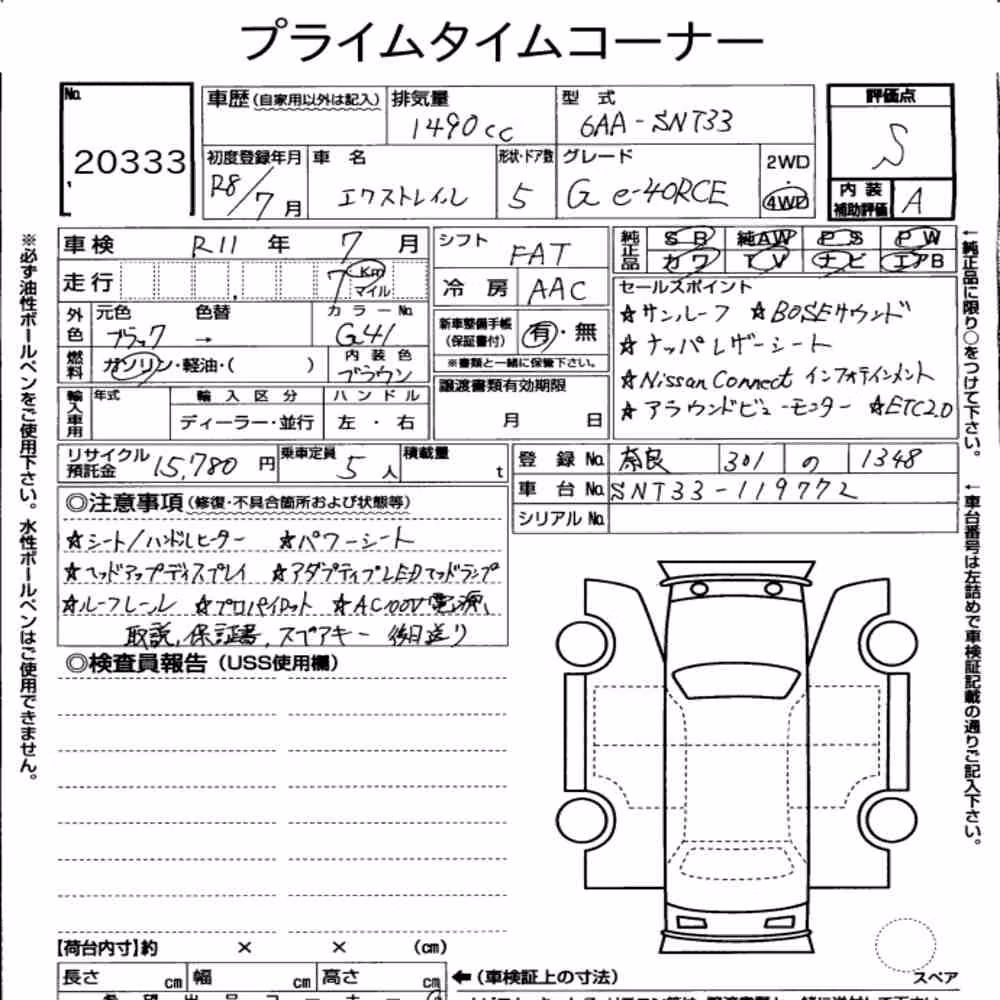 プライムタイムコーナー
No. 20333
車歴(自家用以外は記入) 排気量 1490cc 型式 6AA-SNT33 評価点 S
初度登録年月 R8/7月 車名 エクストレイル 形状・ドア数 5 グレード G e-4ORCE 2WD・4WD 内装補助評価 A
車検 R11年 7月 シフト FAT 純正品 SR 純AW PS PW
カワ TV ナビ エアB
走行 7 Km マイル 冷房 AAC
セールスポイント
☆サンルーフ ☆BOSEサウンド
☆ナッパレザーシート
☆Nissan Connect インフォテインメント
☆アラウンドビューモニター ☆ETC2.0
外色 元色 ブラック → 色替 カラーNo. G41
新車整備手帳(保証書付) 有・無
※書類と一緒に保管下さい。
燃料 ガソリン・軽油・( ) 内装色 ブラウン
譲渡書類有効期限 月 日
輸入車用 年式 輸入区分 ディーラー・並行 ハンドル 左・右
リサイクル預託金 15,780円 乗車定員 5人 積載量 t
登録No. 奈良 301 の 1348
車台No. SNT33-119772
シリアルNo.
◎注意事項(修復・不具合箇所および状態等)
☆シート/ハンドルヒーター ☆パワーシート
☆ヘッドアップディスプレイ ☆アダプティブLEDヘッドランプ
☆ルーフレール ☆プロパイロット ☆AC100V電源、
取説、保証書、スペアキー 後日送り
◎検査員報告(USS使用欄)
【荷台内寸】約 × × (cm)
長さ cm 幅 cm 高さ cm ←(車検証上の寸法)
スペア
※必ず油性ボールペンをご使用下さい。水性ボールペンはご使用できません。
←純正品に限り○をつけて下さい。
←車台番号は左詰めで車検証記載の通りご記入下さい。